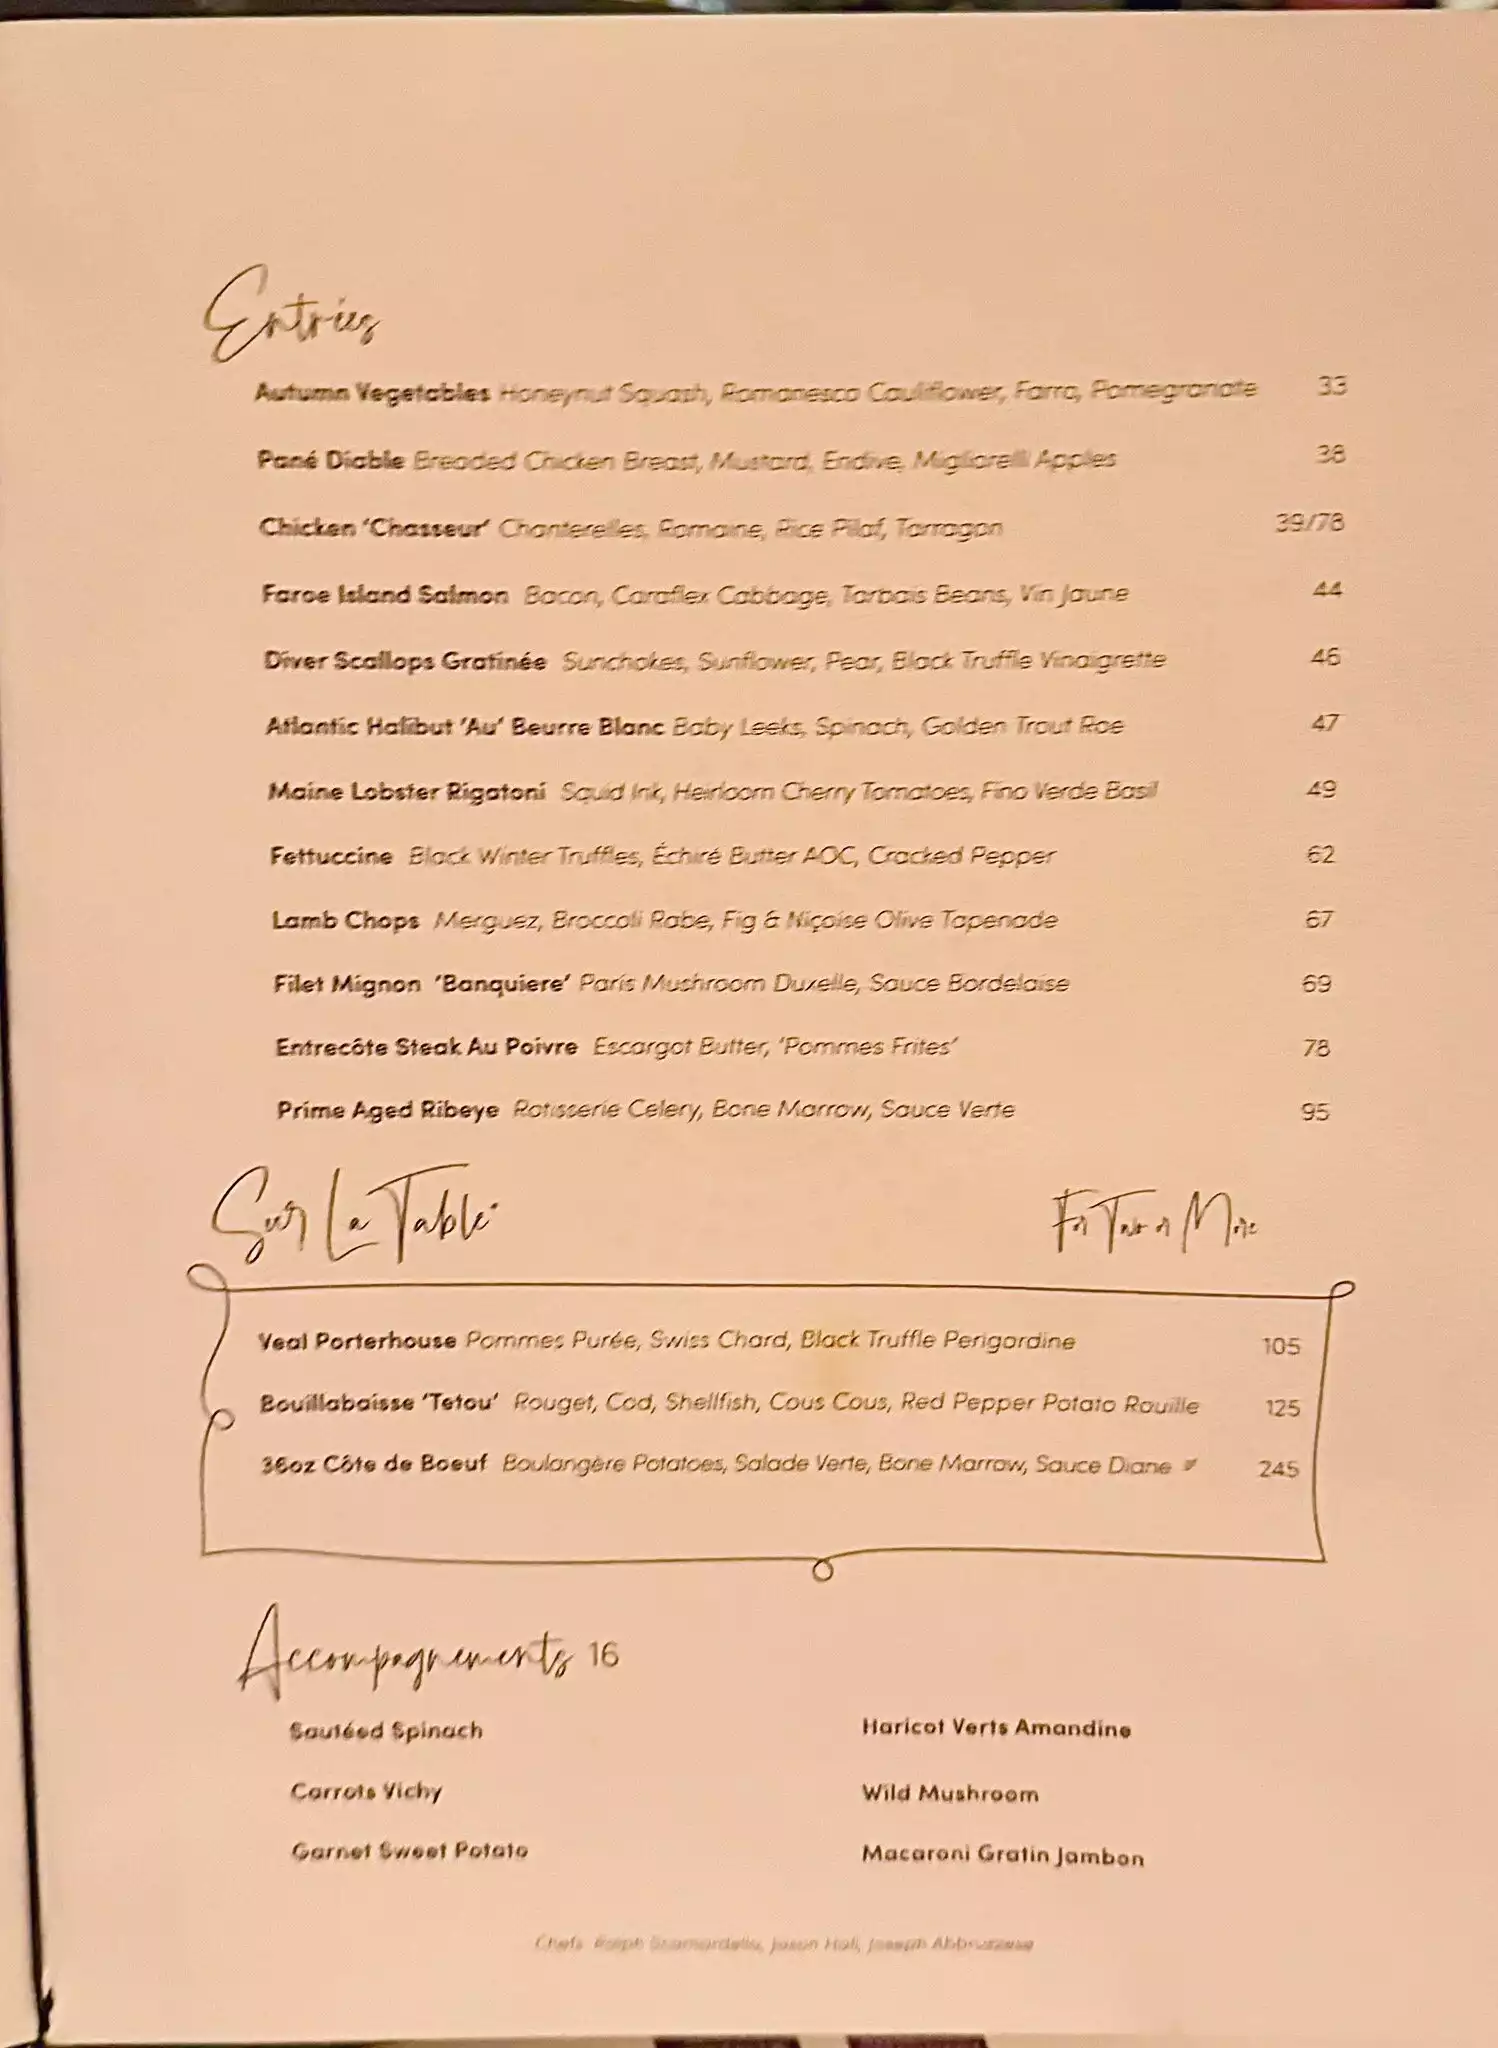 Entrées
Autumn Vegetables Honeynut Squash, Romanesco Cauliflower, Farro, Pomegranate 33
Pané Diable Breaded Chicken Breast, Mustard, Endive, Migliorelli Apples 38
Chicken 'Chasseur' Chanterelles, Romaine, Rice Pilaf, Tarragon 39/78
Faroe Island Salmon Bacon, Caraflex Cabbage, Tarbais Beans, Vin Jaune 44
Diver Scallops Gratinée Sunchokes, Sunflower, Pear, Black Truffle Vinaigrette 46
Atlantic Halibut 'Au' Beurre Blanc Baby Leeks, Spinach, Golden Trout Roe 47
Maine Lobster Rigatoni Squid Ink, Heirloom Cherry Tomatoes, Fino Verde Basil 49
Fettuccine Black Winter Truffles, Échiré Butter AOC, Cracked Pepper 62
Lamb Chops Merguez, Broccoli Rabe, Fig & Niçoise Olive Tapenade 67
Filet Mignon 'Banquiere' Paris Mushroom Duxelle, Sauce Bordelaise 69
Entrecôte Steak Au Poivre Escargot Butter, 'Pommes Frites' 78
Prime Aged Ribeye Rotisserie Celery, Bone Marrow, Sauce Verte 95
Sur La Table For Two or More
Veal Porterhouse Pommes Purée, Swiss Chard, Black Truffle Perigordine 105
Bouillabaisse 'Tetou' Rouget, Cod, Shellfish, Cous Cous, Red Pepper Potato Rouille 125
36oz Côte de Boeuf Boulangère Potatoes, Salade Verte, Bone Marrow, Sauce Diane 245
Accompagnements 16
Sautéed Spinach Haricot Verts Amandine
Carrots Vichy Wild Mushroom
Garnet Sweet Potato Macaroni Gratin Jambon
Chefs Ralph Scamardella, Jason Hall, Joseph Abbruzzese